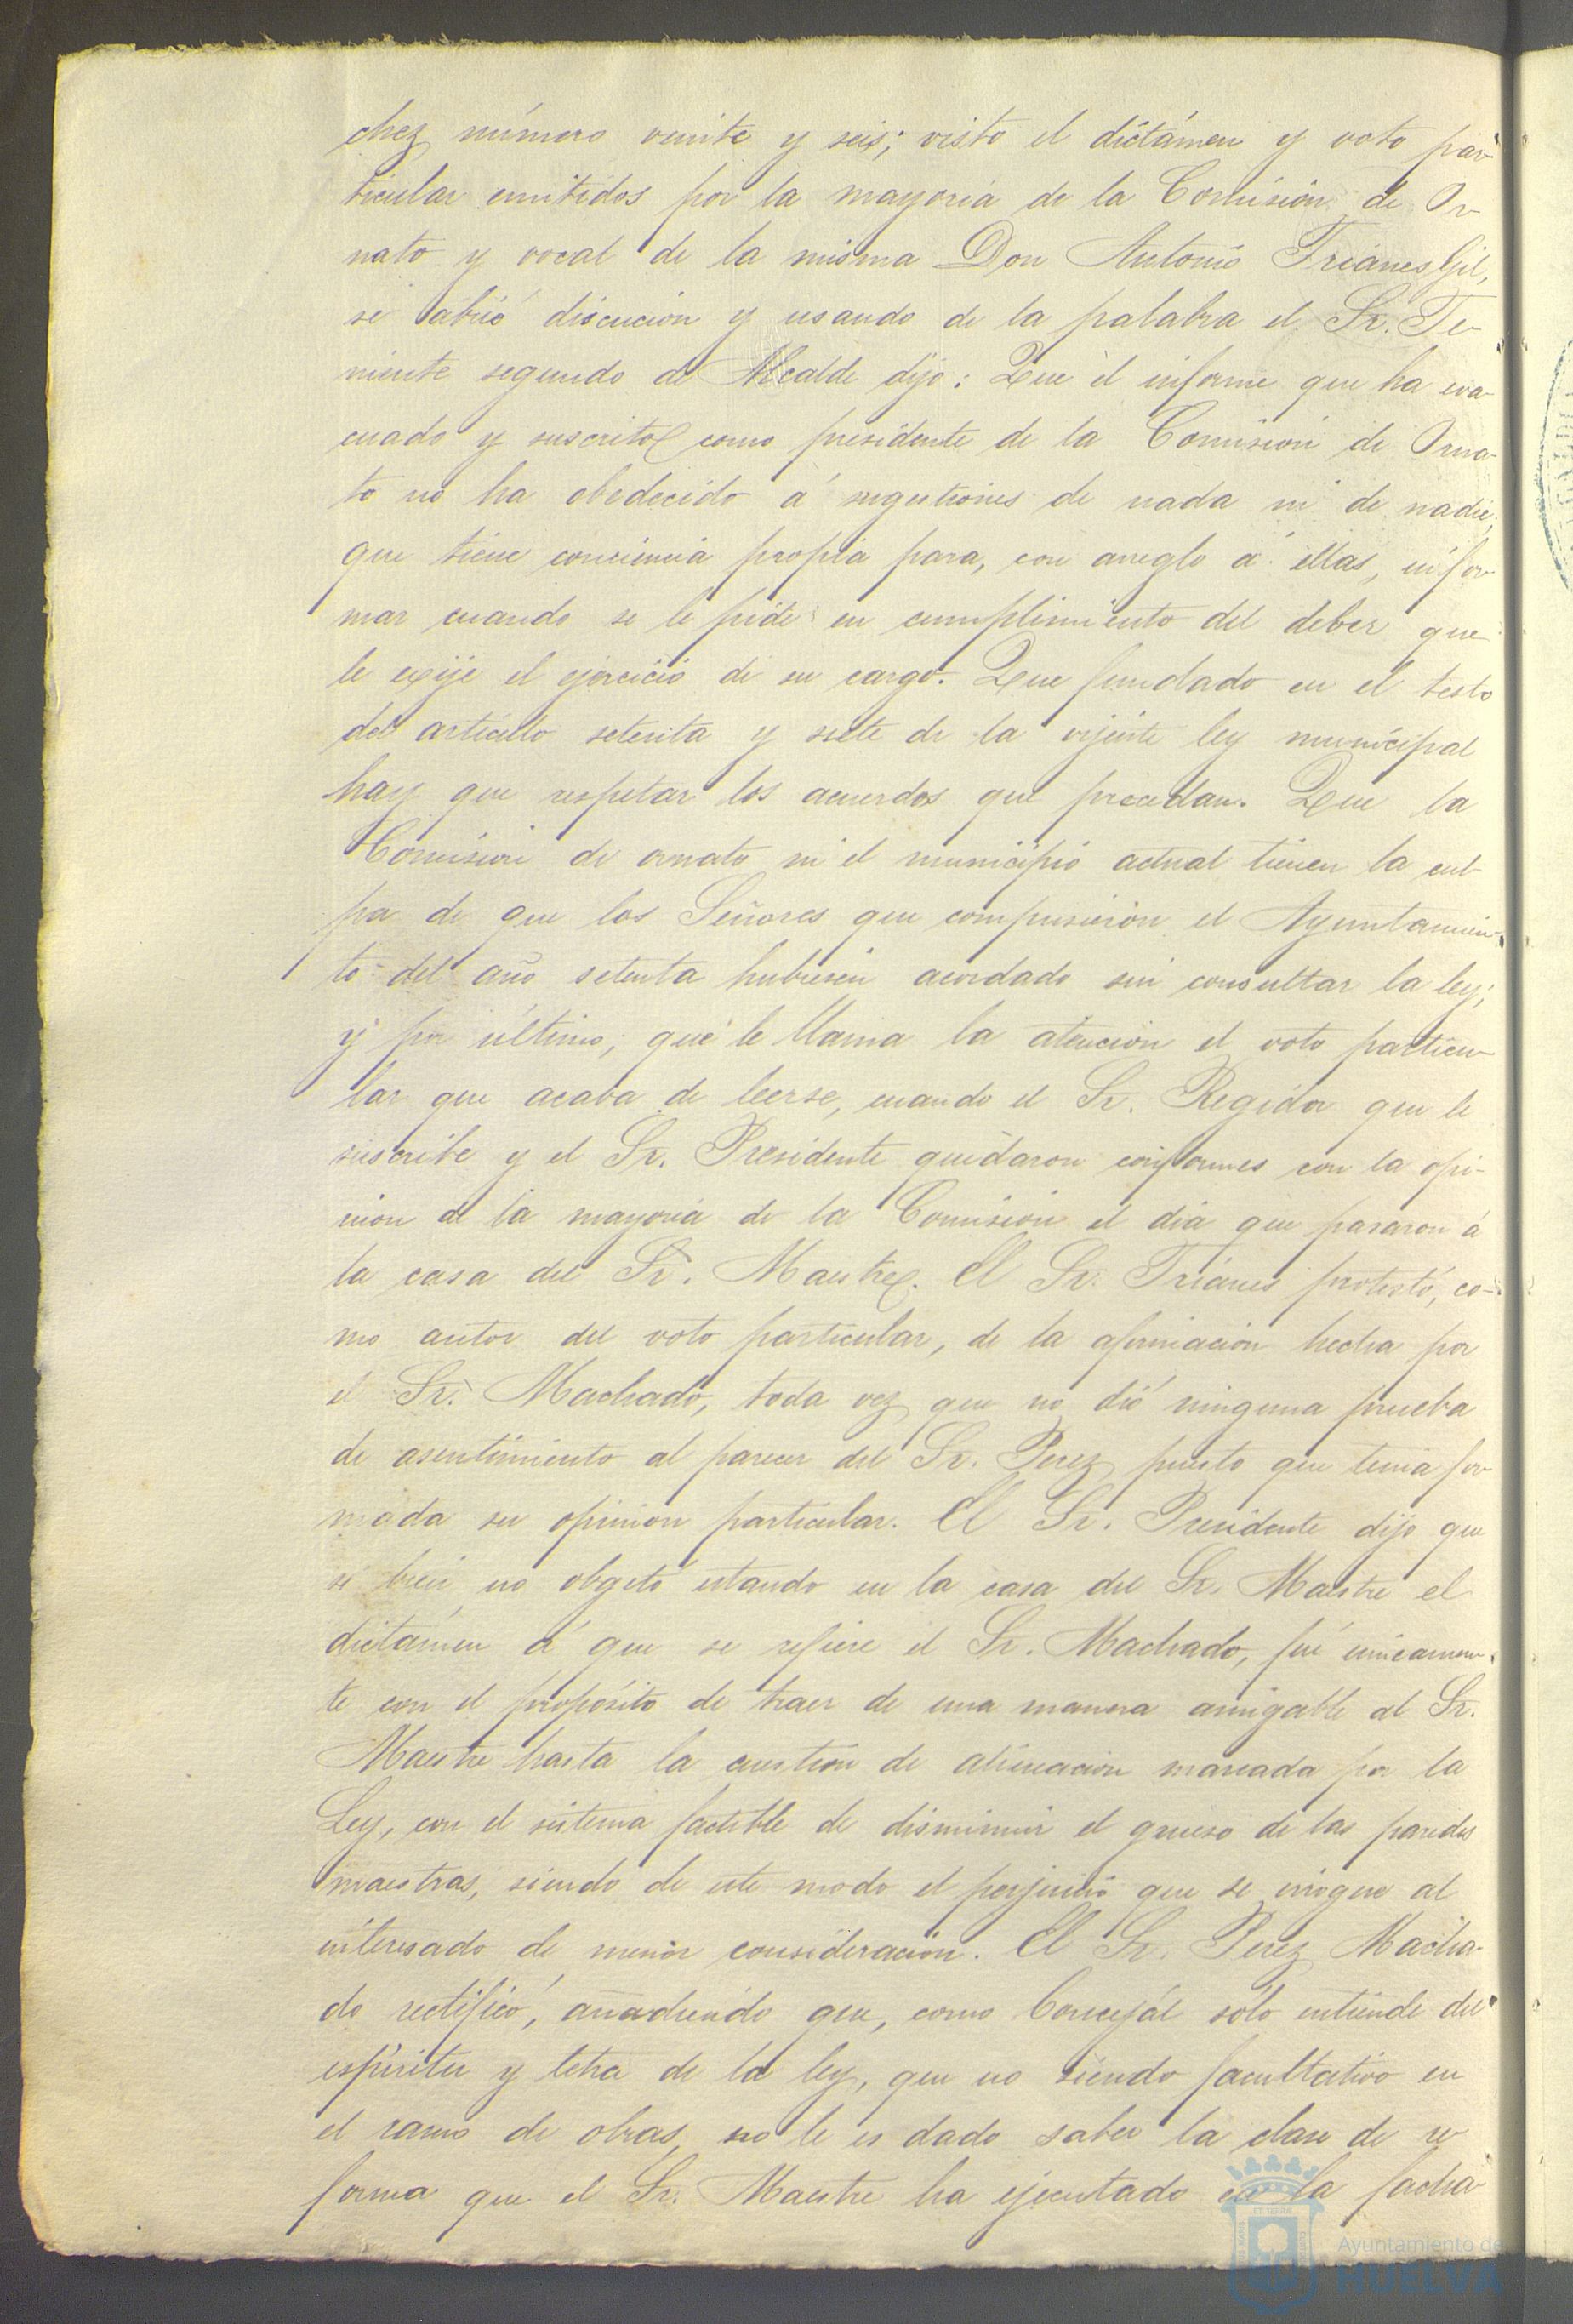 chez número veinte y seis; visto el dictámen y voto par
ticular emitidos por la mayoria de la Comisión de Or
nato y vocal de la misma Don Antonio Trianes Gil,
se abrió discucion y usando de la palabra el Sr. Te
niente segundo de Alcalde dijo: Que el informe que ha eva-
cuado y suscrito como presidente de la Comision de Orna-
to no ha obedecido á sugestiones de nada ni de nadie;
que tiene conciencia propia para, con arreglo á ellas, infor
mar cuando se le pide en cumplimiento del deber que
le exije el ejercicio de su cargo. Que fundado en el testo
del artículo setenta y siete de la vijente ley municipal
hay que respetar los acuerdos que procedan. Que la
Comision de ornato ni el municipio actual tienen la cul-
pa de que los Señores que compusieron el Ayuntamien-
to del año setenta hubiesen acordado sin consultar la ley;
y por último, que le llama la atencion el voto particu-
lar que acaba de leerse, cuando el Sr. Regidor que le
suscribe y el Sr. Presidente quedaron conformes con la opi-
nion de la mayoria de la Comision el dia que pasaron á
la casa del Sr. Maestre. El Sr. Trianes protestó, co-
mo autor del voto particular, de la afirmacion hecha por
el Sr. Machado, toda vez que no dió ninguna prueba
de asentimiento al parecer del Sr. Perez puesto que tenia for
mada su opinion particular. El Sr. Presidente dijo que
si bien no objetó estando en la casa del Sr. Maestre el
dictámen á que se refiere el Sr. Machado, fué unicamen-
te con el propósito de traer de una manera amigable al Sr.
Maestre hasta la cuestion de alineacion marcada por la
Ley, con el sistema factible de disminuir el grueso de las paredes
maestras, siendo de este modo el perjuicio que se irrogue al
interesado de menor consideración. El Sr. Perez Macha-
do rectificó, añadiendo que, como Concejál sólo entiende del
espíritu y letra de la ley, que no siendo facultativo en
el ramo de obras, no le es dado saber la clase de re
forma que el Sr. Maestre ha ejecutado en la facha
Ayuntamiento de
HUELVA